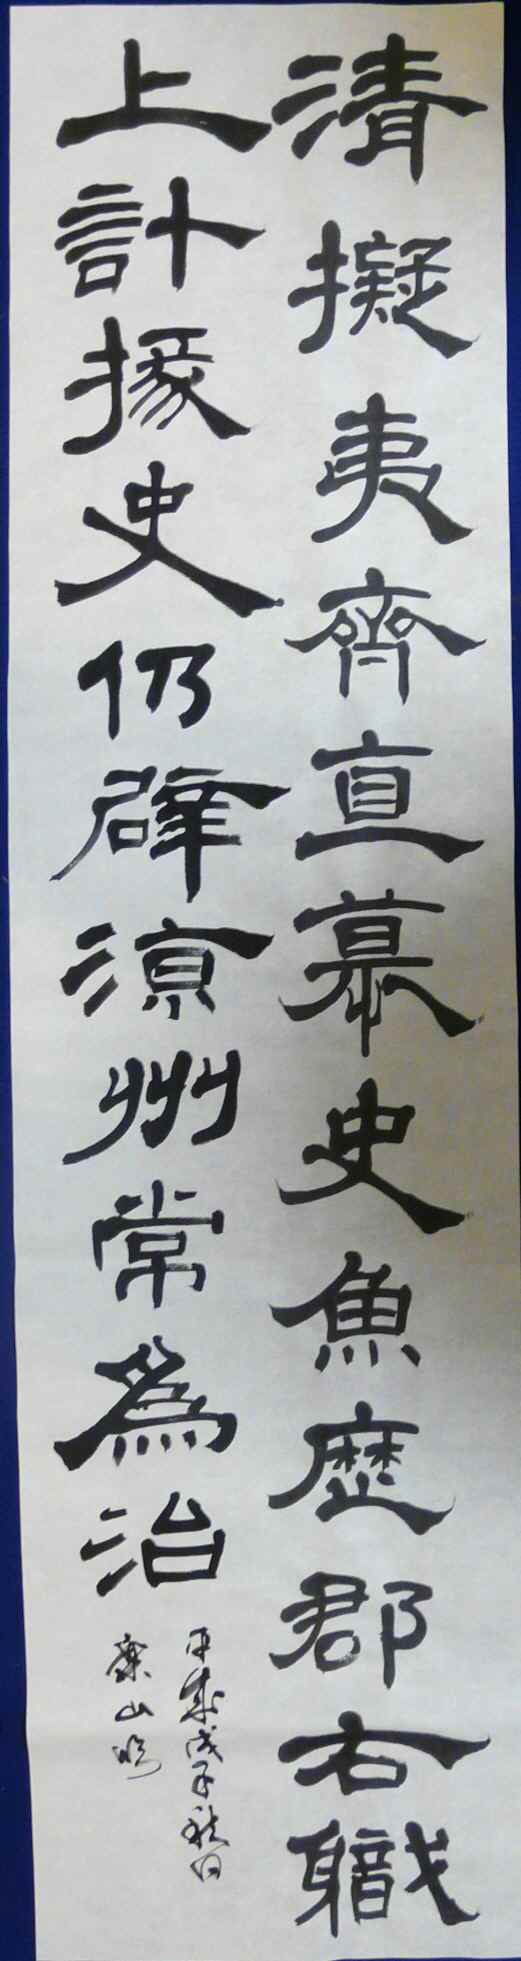 清擬夷齊直慕史魚歷郡右職
上計掾史仍辟涼州常為治
平成戊子秋日
山